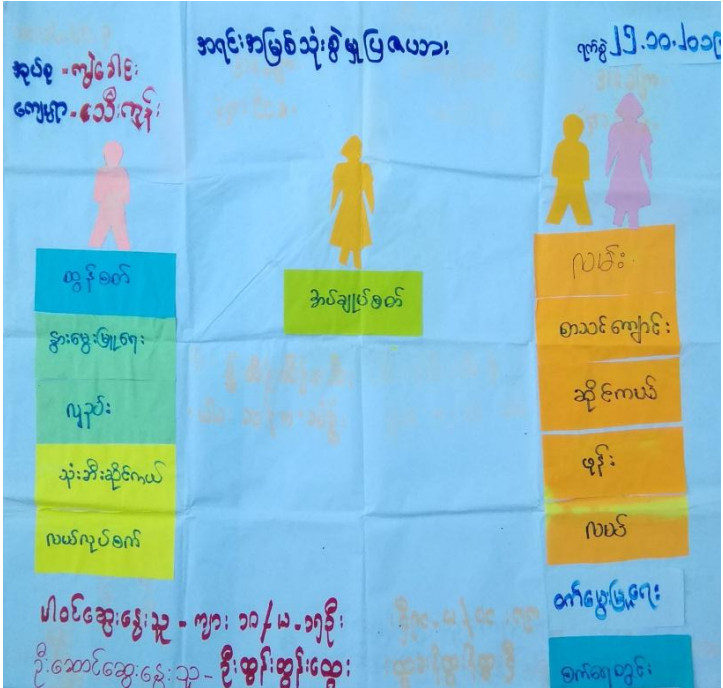 အရင်းအမြစ်သုံးစွဲမှုပြဇယား
ရက်စွဲ ၂၅.၁၀.၂၀၁၉
အုပ်စု - ကျွဲခေါင်း
ကျေးရွာ - သေီးကုန်း
ထွန်စက်
နွားမွေးမြူရေး
လှည်း
သုံးဘီးဆိုင်ကယ်
လယ်လုပ်စက်
အပ်ချုပ်စက်
လမ်း
စာသင်ကျောင်း
ဆိုင်ကယ်
ဖုန်း
လယ်
ဝက်မွေးမြူရေး
စက်ရေတွင်း
ပါဝင်ဆွေးနွေးသူ - ကျား ၁၈ / မ - ၁၅ဦး
ဦးဆောင်ဆွေးနွေးသူ - ဦးထွန်းထွန်းထွေး